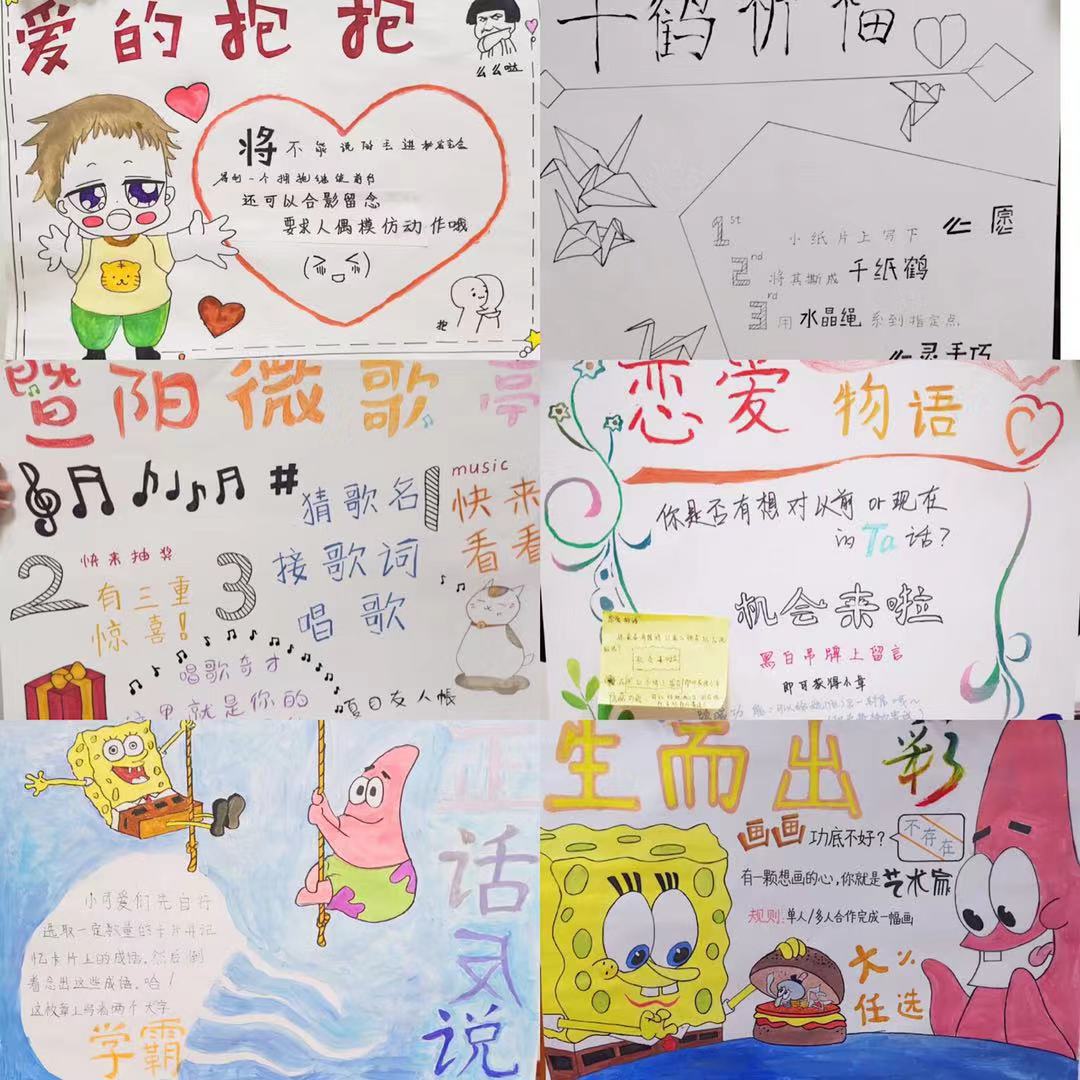 爱的抱抱
么么哒
将不能说的去进
得到一个拥抱继续前行
还可以合影留念
要求人偶模仿动作哦
抱
千鹤祈福
1st 小纸片上写下 心愿
2nd 将其撕成 千纸鹤
3rd 用 水晶绳 系到指定点
心灵手巧
暨阳微歌亭
# 猜歌名 1
music
快来
看看
2 快来抽奖
有三重
惊喜!
3 接歌词
唱歌
唱歌奇才
这里就是你的
夏目友人帐
恋爱物语
你是否有想对以前or现在
的Ta话?
机会来啦
黑白吊牌上留言
即可获得小章
正话反说
小可爱们先自行
选取一定数量的卡片并记
忆卡片上的成语,然后倒
着念出这些成语,哈!
这枚章上写着两个大字
学霸
生而出彩
画画功底不好?
不存在
有一颗想画的心,你就是艺术家
规则:单人/多人合作完成一幅画
大%
任选